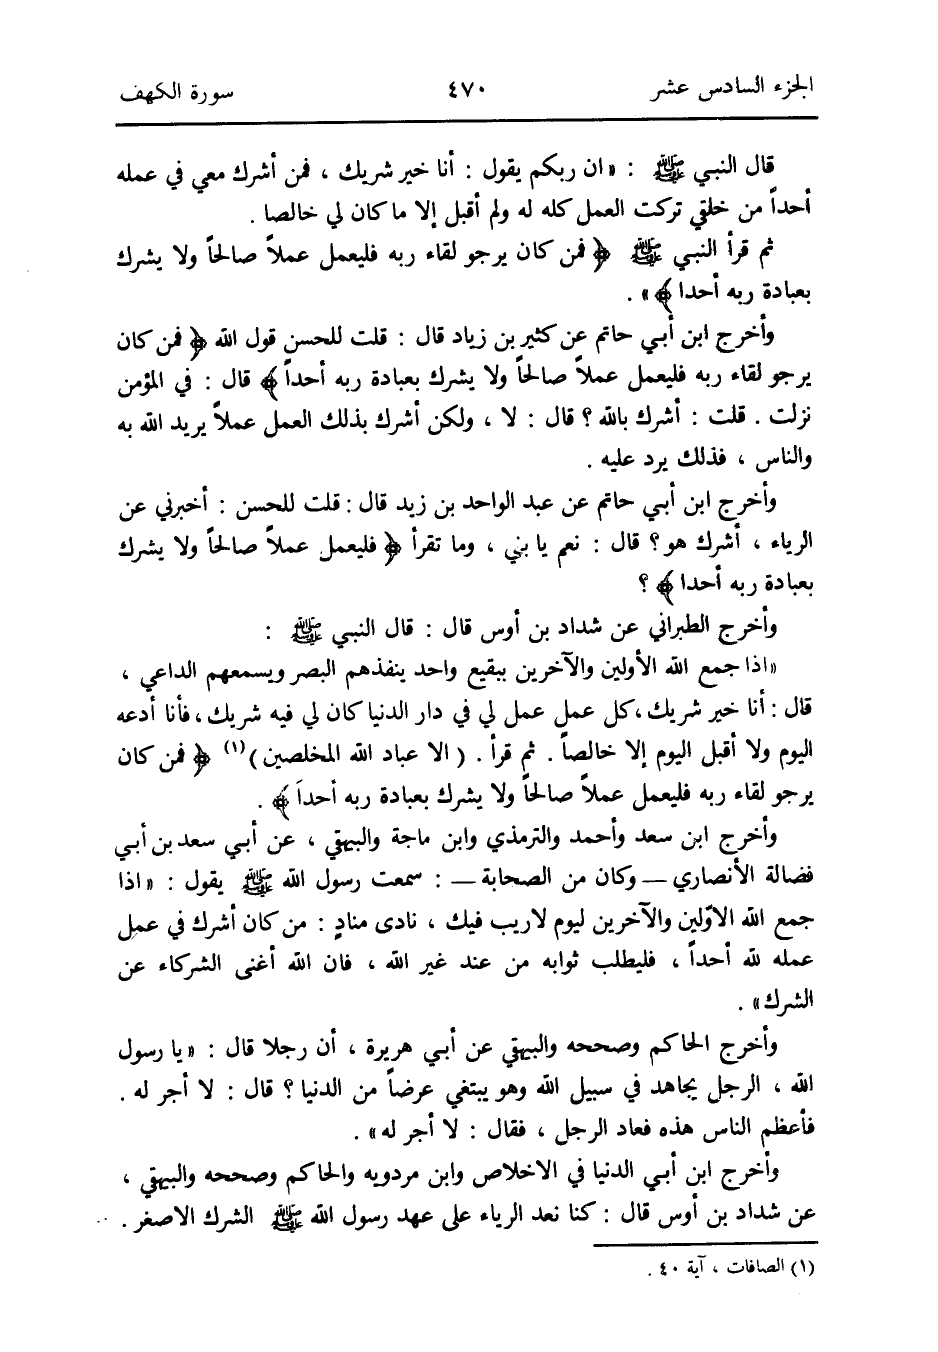 الجزء السادس عشر ٤٧٠ سورة الكهف
قال النبي ﷺ : «ان ربكم يقول : أنا خير شريك ، فمن أشرك معي في عمله
أحداً من خلقي تركت العمل كله له ولم أقبل إلا ما كان لي خالصا .
ثم قرأ النبي ﷺ ﴿ فمن كان يرجو لقاء ربه فليعمل عملاً صالحاً ولا يشرك
بعبادة ربه أحدا ﴾» .
وأخرج ابن أبي حاتم عن كثير بن زياد قال : قلت للحسن قول الله ﴿ فمن كان
يرجو لقاء ربه فليعمل عملاً صالحاً ولا يشرك بعبادة ربه أحداً ﴾ قال : في المؤمن
نزلت . قلت : أشرك بالله ؟ قال : لا ، ولكن أشرك بذلك العمل عملاً يريد الله به
والناس ، فذلك يرد عليه .
وأخرج ابن أبي حاتم عن عبد الواحد بن زيد قال : قلت للحسن : أخبرني عن
الرياء ، أشرك هو ؟ قال : نعم يا بني ، وما تقرأ ﴿ فليعمل عملاً صالحاً ولا يشرك
بعبادة ربه أحدا ﴾ ؟
وأخرج الطبراني عن شداد بن أوس قال : قال النبي ﷺ :
«اذا جمع الله الأولين والآخرين ببقيع واحد ينفذهم البصر ويسمعهم الداعي ،
قال : أنا خير شريك ، كل عمل عمل لي في دار الدنيا كان لي فيه شريك ، فأنا أدعه
اليوم ولا أقبل اليوم إلا خالصاً . ثم قرأ . ( الا عباد الله المخلصين )(١) ﴿ فمن كان
يرجو لقاء ربه فليعمل عملاً صالحاً ولا يشرك بعبادة ربه أحداَ ﴾ .
وأخرج ابن سعد وأحمد والترمذي وابن ماجة والبيهقي ، عن أبي سعد بن أبي
فضالة الأنصاري — وكان من الصحابة — : سمعت رسول الله ﷺ يقول : «اذا
جمع الله الاوّلين والآخرين ليوم لا ريب فيك ، نادى منادٍ : من كان أشرك في عملِ
عمله لله أحداً ، فليطلب ثوابه من عند غير الله ، فان الله أغنى الشركاء عن
الشرك» .
وأخرج الحاكم وصححه والبيهقي عن أبي هريرة ، أن رجلا قال : «يا رسول
الله ، الرجل يجاهد في سبيل الله وهو يبتغي عرضاً من الدنيا ؟ قال : لا أجر له .
فأعظم الناس هذه فعاد الرجل ، فقال : لا أجر له» .
وأخرج ابن أبي الدنيا في الاخلاص وابن مردويه والحاكم وصححه والبيهقي ،
عن شداد بن أوس قال : كنا نعد الرياء على عهد رسول الله ﷺ الشرك الاصغر .
(١) الصافات ، آية ٤٠ .